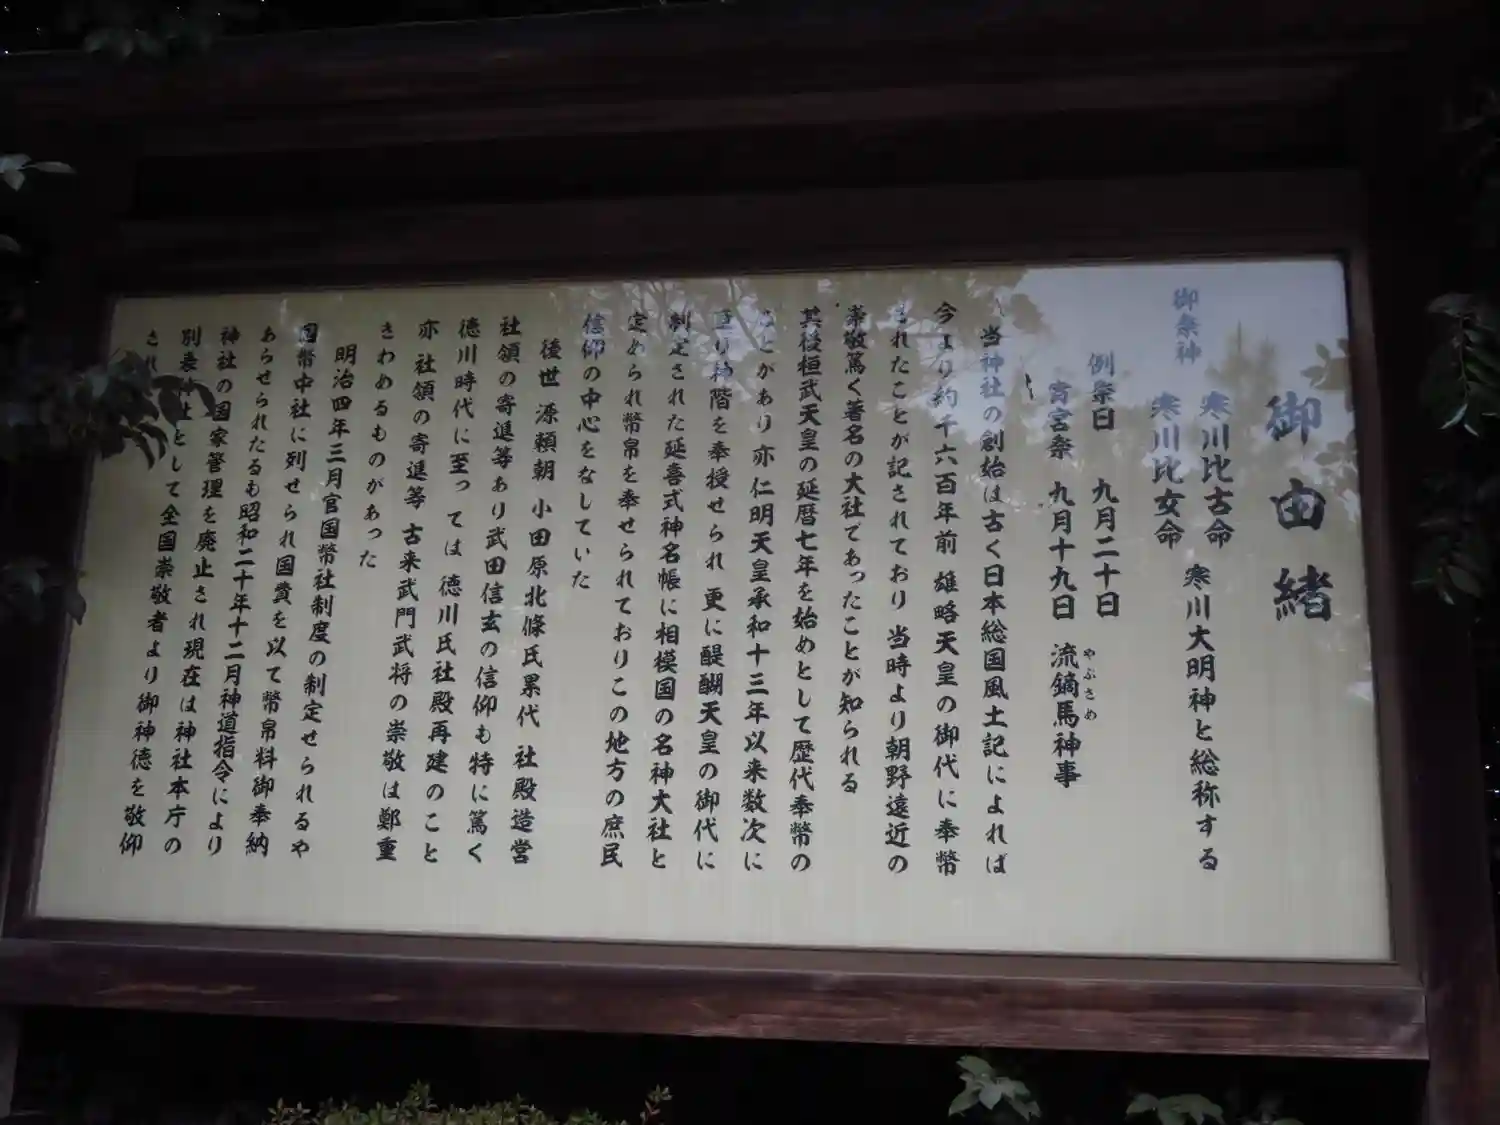 御由緒
御祭神
寒川比古命
寒川比女命
寒川大明神と総称する
例祭日 九月二十日
宵宮祭 九月十九日 流鏑馬神事
やぶさめ
当神社の創始は古く日本総国風土記によれば
今より約千六百年前 雄略天皇の御代に奉幣
されたことが記されており 当時より朝野遠近の
崇敬篤く著名の大社であったことが知られる
其後桓武天皇の延暦七年を始めとして歴代奉幣の
ことがあり 亦仁明天皇承和十三年以来数次に
亘り神階を奉授せられ 更に醍醐天皇の御代に
制定された延喜式神名帳に相模国の名神大社と
定められ幣帛を奉せられておりこの地方の庶民
信仰の中心をなしていた
後世 源頼朝 小田原北條氏累代 社殿造営
社領の寄進等あり武田信玄の信仰も特に篤く
徳川時代に至っては 徳川氏社殿再建のこと
亦社領の寄進等 古来武門武将の崇敬は鄭重
きわめるものがあった
明治四年三月官国幣社制度の制定せられるや
国幣中社に列せられ国費を以て幣帛料御奉納
あらせられたるも昭和二十年十二月神道指令により
神社の国家管理を廃止され現在は神社本庁の
別表神社として全国崇敬者より御神徳を敬仰
され